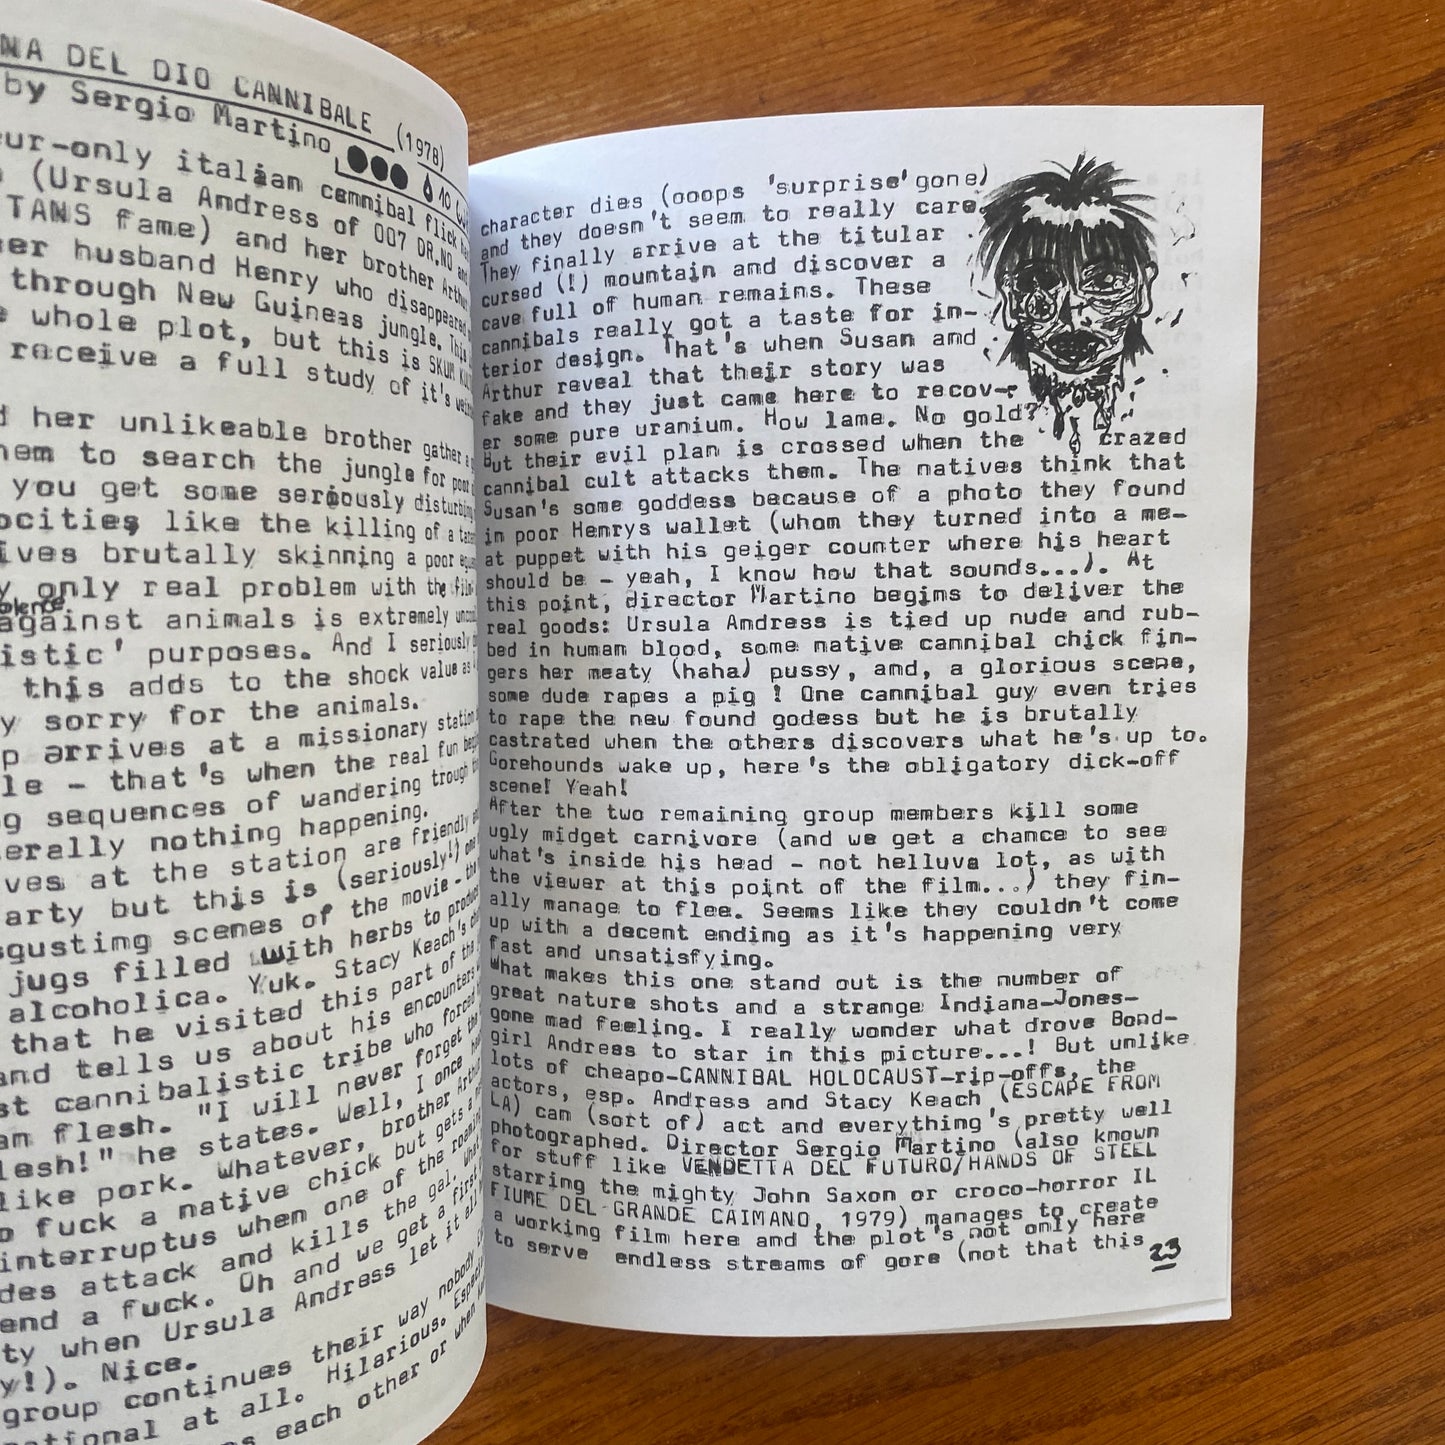 NA DEL DIO CANNIBALE (1978)
by Sergio Martino
eur-only italian cannibal flick
(Ursula Andress of 007 DR.NO and
TANS fame) and her brother Arthur
her husband Henry who disappeared
through New Guineas jungle. This
whole plot, but this is SKUM
receive a full study of it's
d her unlikeable brother gather a
hem to search the jungle for poor
you get some seriously disturbing
ocities, like the killing of a
ives brutally skinning a poor
y only real problem with the film
violence
against animals is extremely
istic' purposes. And I seriously
this adds to the shock value as
y sorry for the animals.
p arrives at a missionary station
le - that's when the real fun
ng sequences of wandering trough
erally nothing happening.
ves at the station are friendly
arty but this is (seriously!) one
sgusting scenes of the movie -
jugs filled with herbs to produce
alcoholica. Yuk. Stacy Keach's
that he visited this part of the
and tells us about his encounters
st cannibalistic tribe who forced
an flesh. "I will never forget the
lesh!" he states. Well, I once
like pork. Whatever, brother Arthur
o fuck a native chick but gets a
interruptus when one of the roaming
des attack and kills the gal. What
end a fuck. Oh and we get a first
ty when Ursula Andress let it all
y!). Nice.
group continues their way nobody
ational at all. Hilarious.
each other or when
character dies (ooops 'surprise'gone)
and they doesn't seem to really care.
They finally arrive at the titular
cursed (!) mountain and discover a
cave full of human remains. These
cannibals really got a taste for in-
terior design. That's when Susan and
Arthur reveal that their story was
fake and they just came here to recov-
er some pure uranium. How lame. No gold?
But their evil plan is crossed when the crazed
cannibal cult attacks them. The natives think that
Susan's some goddess because of a photo they found
in poor Henrys wallet (whom they turned into a me-
at puppet with his geiger counter where his heart
should be - yeah, I know how that sounds...). At
this point, director Martino begins to deliver the
real goods: Ursula Andress is tied up nude and rub-
bed in human blood, some native cannibal chick fin-
gers her meaty (haha) pussy, and, a glorious scene,
some dude rapes a pig ! One cannibal guy even tries
to rape the new found godess but he is brutally
castrated when the others discovers what he's up to.
Gorehounds wake up, here's the obligatory dick-off
scene! Yeah!
After the two remaining group members kill some
ugly midget carnivore (and we get a chance to see
what's inside his head - not helluva lot, as with
the viewer at this point of the film...) they fin-
ally manage to flee. Seems like they couldn't come
up with a decent ending as it's happening very
fast and unsatisfying.
What makes this one stand out is the number of
great nature shots and a strange Indiana-Jones-
gone mad feeling. I really wonder what drove Bond-
girl Andress to star in this picture...! But unlike
lots of cheapo-CANNIBAL HOLOCAUST-rip-offs, the
actors, esp. Andress and Stacy Keach (ESCAPE FROM
LA) can (sort of) act and everything's pretty well
photographed. Director Sergio Martino (also known
for stuff like VENDETTA DEL FUTURO/HANDS OF STEEL
starring the mighty John Saxon or croco-horror IL
FIUME DEL GRANDE CAIMANO, 1979) manages to create
a working film here and the plot's not only here
to serve endless streams of gore (not that this
23